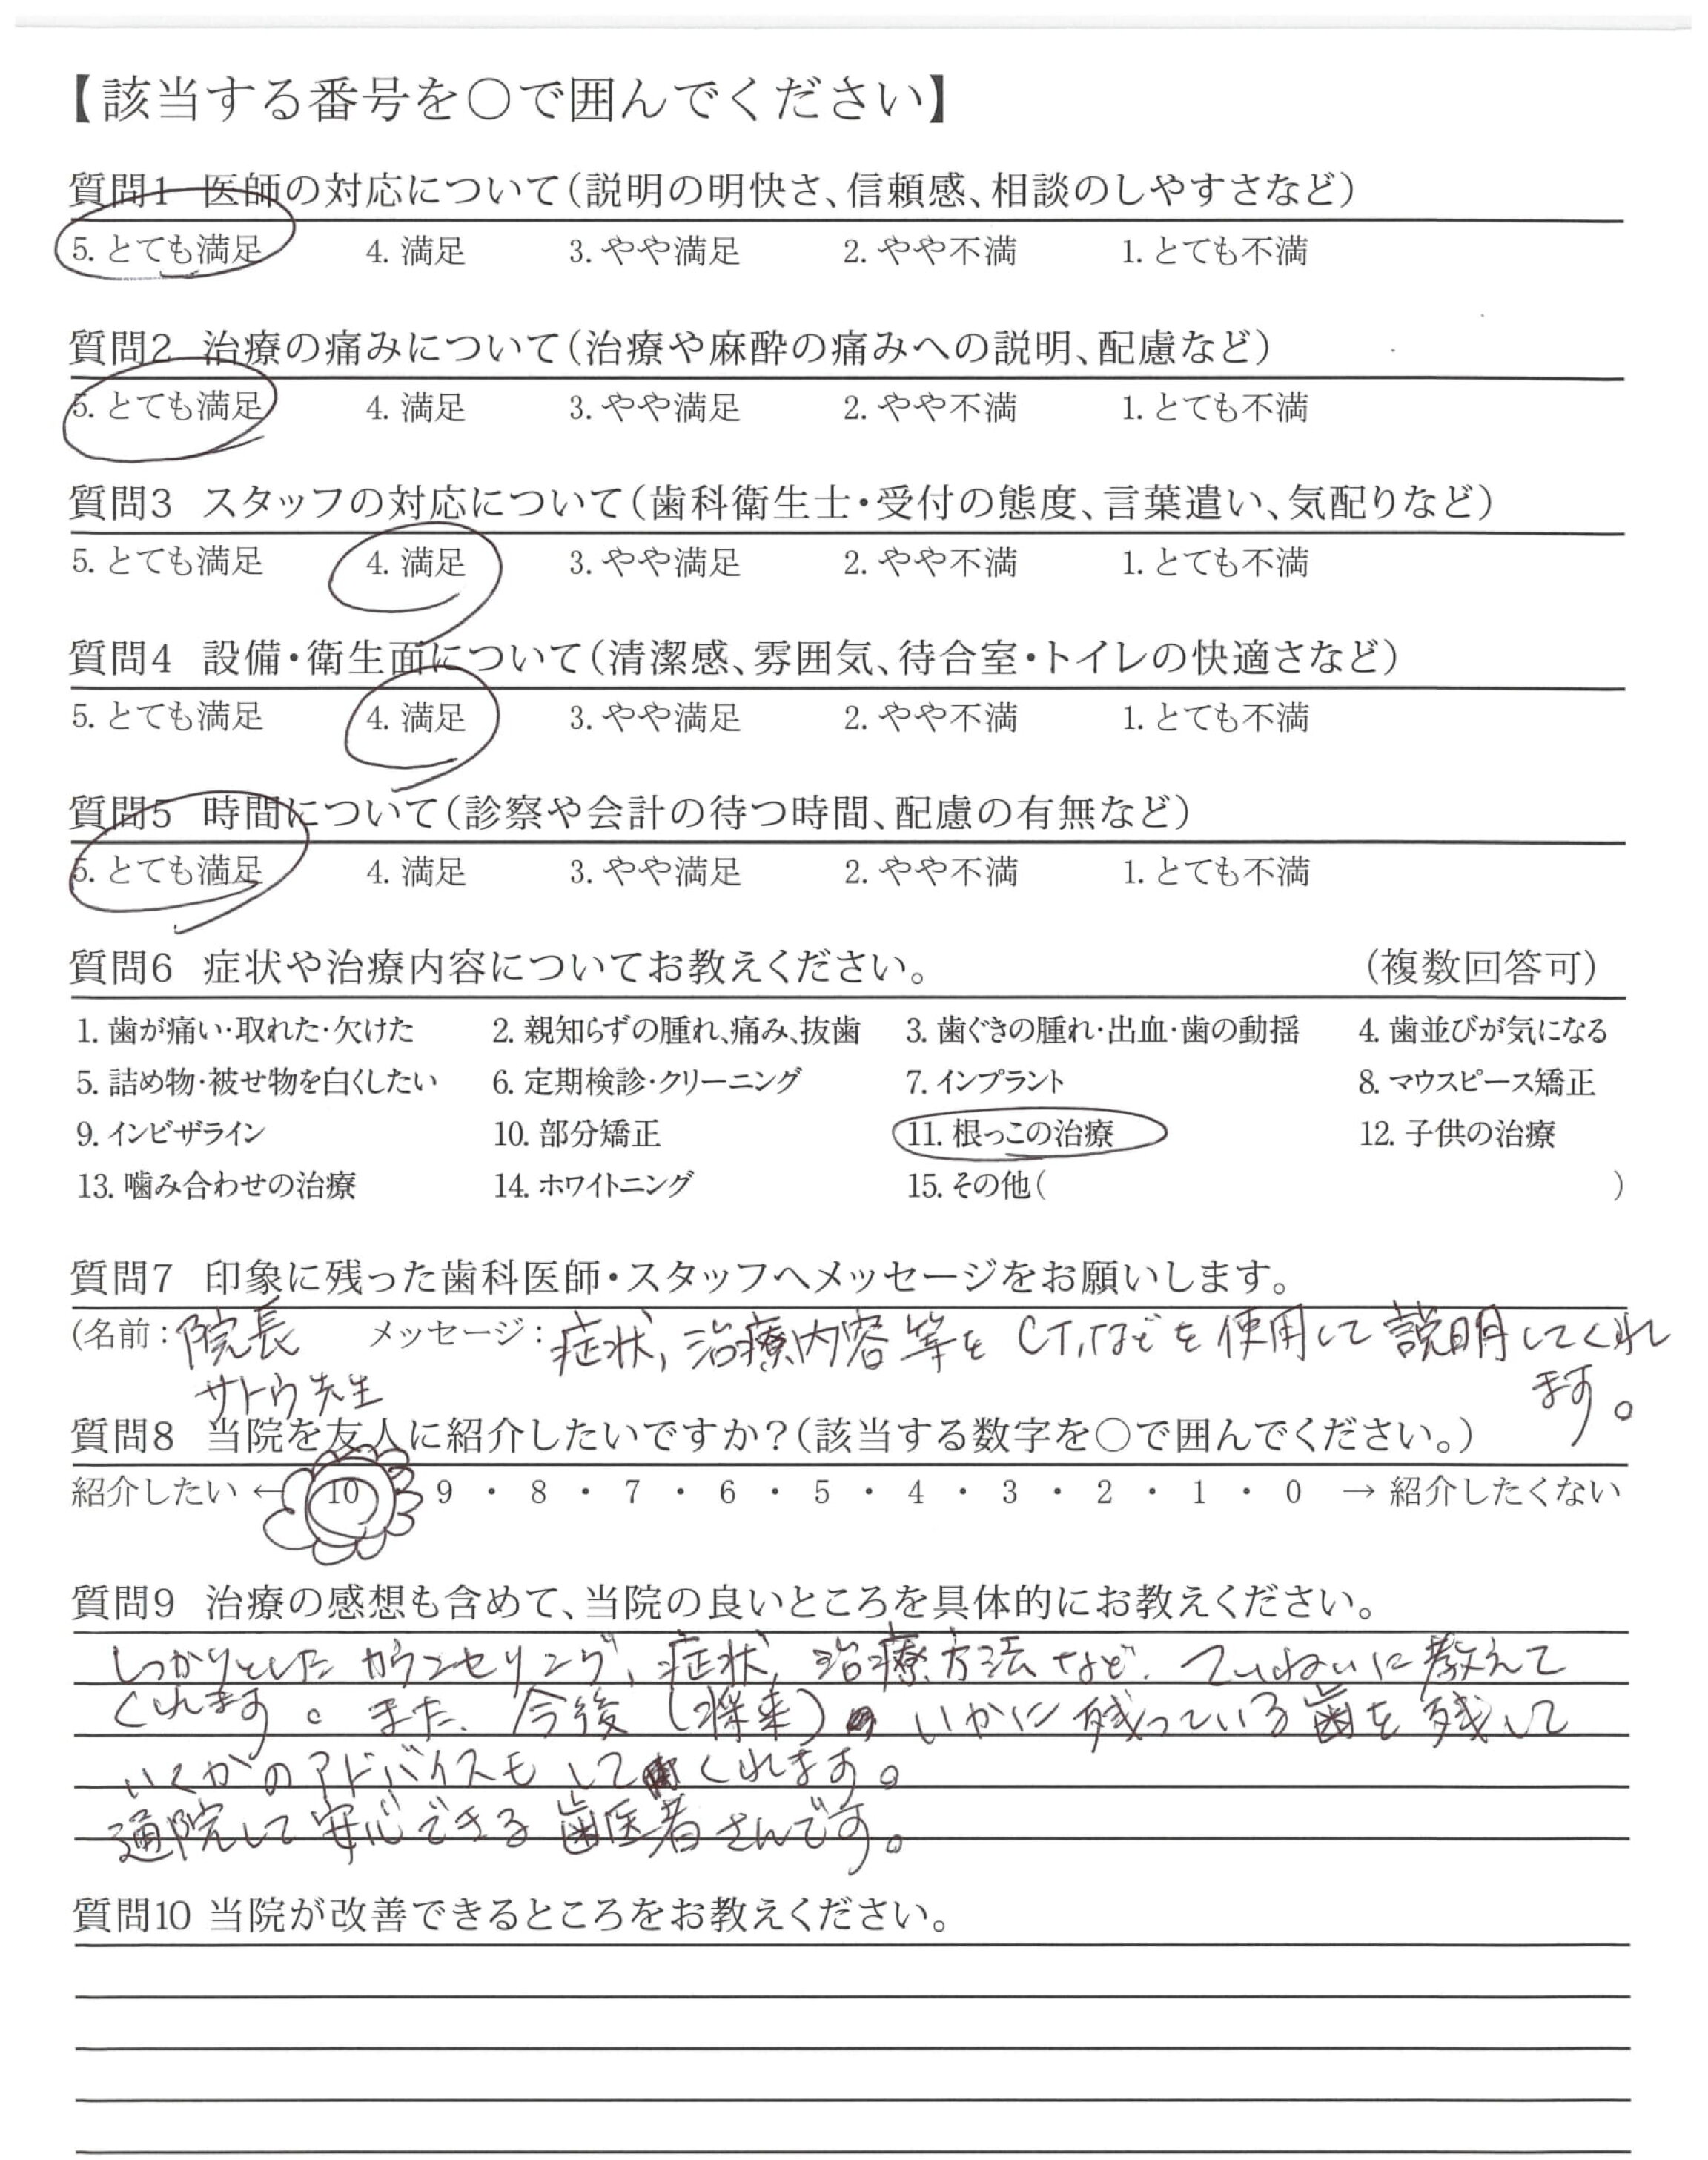 【該当する番号を○で囲んでください】
質問1 医師の対応について(説明の明快さ、信頼感、相談のしやすさなど)
5. とても満足 4. 満足 3. やや満足 2. やや不満 1. とても不満
質問2 治療の痛みについて(治療や麻酔の痛みへの説明、配慮など)
5. とても満足 4. 満足 3. やや満足 2. やや不満 1. とても不満
質問3 スタッフの対応について(歯科衛生士・受付の態度、言葉遣い、気配りなど)
5. とても満足 4. 満足 3. やや満足 2. やや不満 1. とても不満
質問4 設備・衛生面について(清潔感、雰囲気、待合室・トイレの快適さなど)
5. とても満足 4. 満足 3. やや満足 2. やや不満 1. とても不満
質問5 時間について(診察や会計の待つ時間、配慮の有無など)
5. とても満足 4. 満足 3. やや満足 2. やや不満 1. とても不満
質問6 症状や治療内容についてお教えください。 (複数回答可)
1. 歯が痛い・取れた・欠けた 2. 親知らずの腫れ、痛み、抜歯 3. 歯ぐきの腫れ・出血・歯の動揺 4. 歯並びが気になる
5. 詰め物・被せ物を白くしたい 6. 定期検診・クリーニング 7. インプラント 8. マウスピース矯正
9. インビザライン 10. 部分矯正 11. 根っこの治療 12. 子供の治療
13. 噛み合わせの治療 14. ホワイトニング 15. その他( )
質問7 印象に残った歯科医師・スタッフへメッセージをお願いします。
(名前: 院長 メッセージ: 症状, 治療内容等を CT,などを使用して説明してくれ
サトウ先生 ます。
質問8 当院を友人に紹介したいですか?(該当する数字を○で囲んでください。)
紹介したい ← 10 ・ 9 ・ 8 ・ 7 ・ 6 ・ 5 ・ 4 ・ 3 ・ 2 ・ 1 ・ 0 → 紹介したくない
質問9 治療の感想も含めて、当院の良いところを具体的にお教えください。
しっかりとした カウンセリング, 症状, 治療方法など、ていねいに教えて
くれます。また、今後(将来) いかに残っている歯を残して
いくかのアドバイスもして くれます。
通院して安心できる歯医者さんです。
質問10 当院が改善できるところをお教えください。